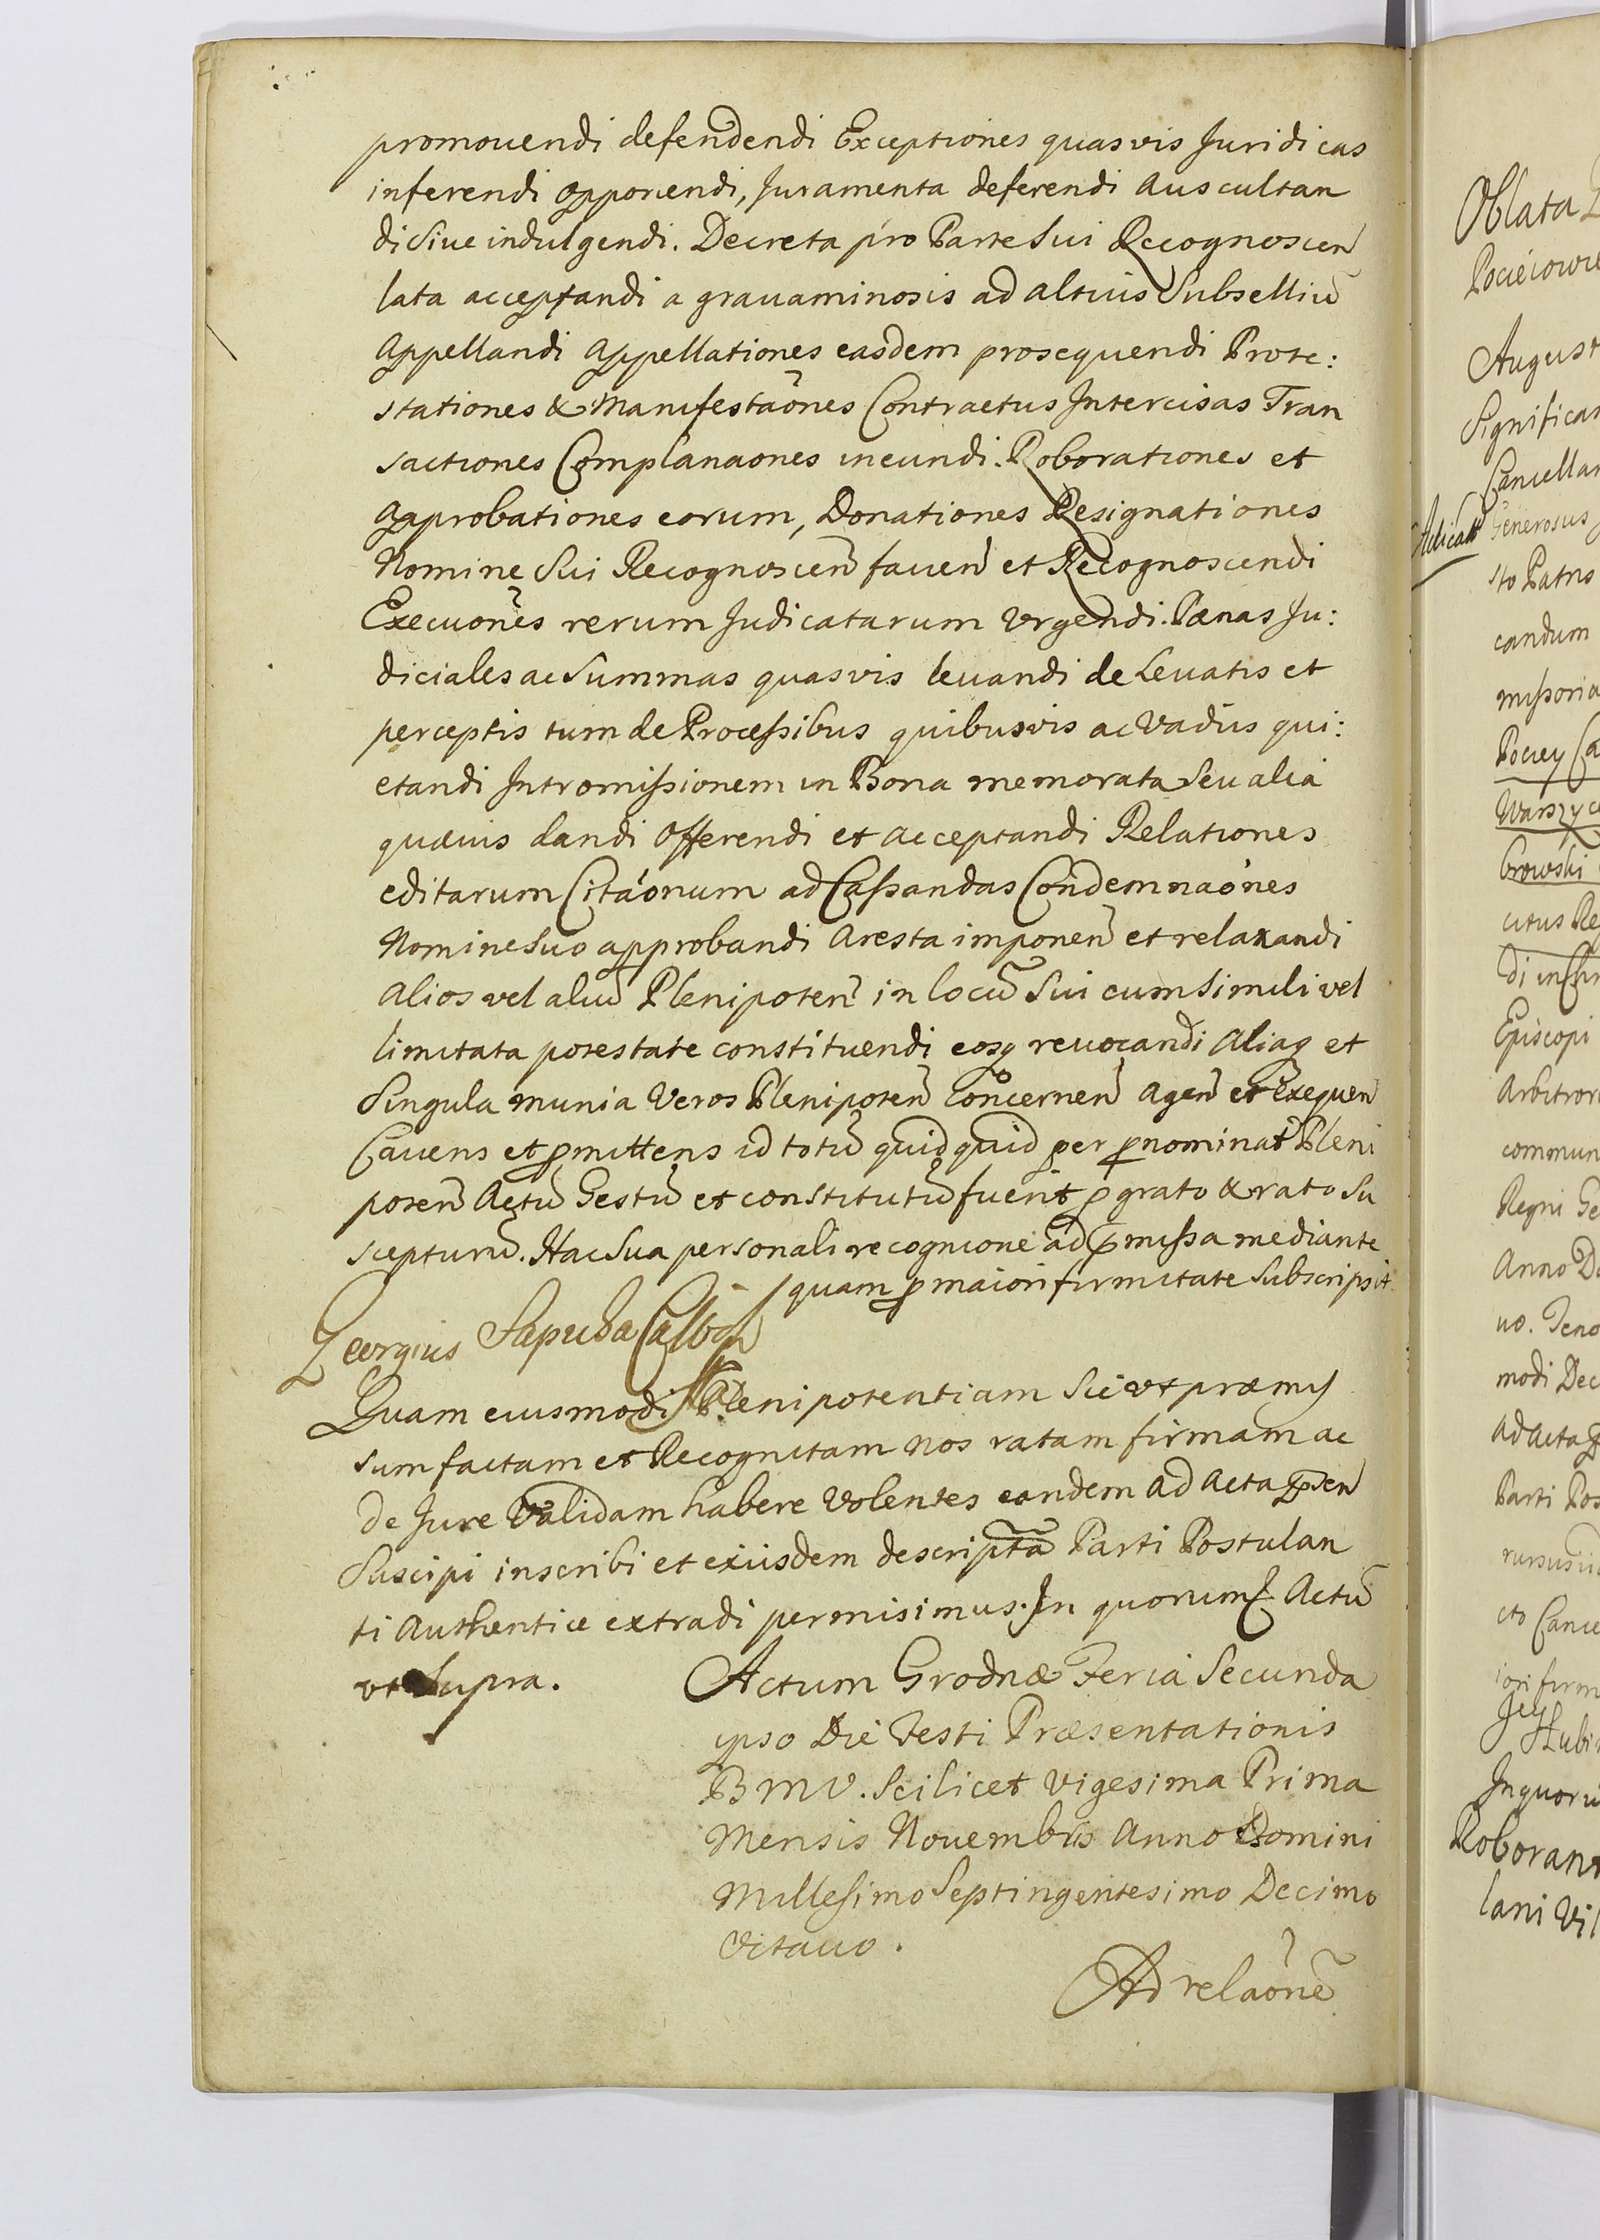 promouendi defendendi Exceptiones quasvis Juridicas
inferendi opponendi, Juramenta deferendi auscultan
di Siue indulgendi. Decreta pro Parte Sui Recognoscen
lata acceptandi a grauaminosis ad altius Subselliū
appellandi appellationes easdem prosequendi Prote:
stationes & Manifestaōnes Contractus Intercisas Tran
sactiones Complanaones ineundi. Roborationes et
approbationes eorum, Donationes Resignationes
Nomine Sui Recognoscen fauen et Recognoscendi
Execuones rerum Judicatarum vrgendi. Pœnas Ju:
diciales ac Summas quasvis leuandi de Leuatis et
perceptis tum de Processibus quibusvis ac Vadiis qui:
etandi Intromissionem in Bona memorata Seu alia
quævis dandi offerendi et acceptandi Relationes
editarum Citaōnum ad Cassandas Condemnaōnes
Nomine Suo approbandi aresta imponen et relaxandi
alios vel aliū Plenipoten in locū Sui cum Simili vel
limitata potestate constituendi eosq reuocandi aliaq et
Singula munia Veros Plenipoten concernen agen et exequen
Cauens et pmittens id totū quidquid per pnominat Pleni
poten actū Gestū et constitutū fuerit p grato & rato Su
scepturū. Hac Sua personali recognicione ad pmissa mediante
quam p maiori firmitate Subscripsit.
Georgius Sapieha
Quam eiusmodi Plenipotentiam Sic vt præmis
sum factam et Recognitam nos ratam firmam ac
de Jure Validam habere Volentes eandem ad acta psen
Suscipi inscribi et eiusdem descripta Parti Postulan
ti authentice extradi permisimus. In quorum Actū
vt Supra.
Actum Grodnæ Feria Secunda
ipso Die Festi Præsentationis
B M V. Scilicet Vigesima Prima
Mensis Nouembris Anno Domini
Millesimo Septingentesimo Decimo
octauo.
Ad relaōnē
Oblata
August
Cancellar
Generosus
sto Patris
candum
missoria
Pociey Ca
Episcopi
commun
Regni Ge
Anno Do
uo. Teno
modi Dec
ad acta
Parti Pos
Roborant
lani Vil